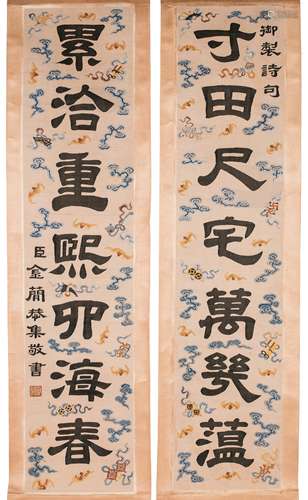 御製詩句
寸田尺宅萬幾薀
累洽重熙卯海春
臣金簡恭集敬書